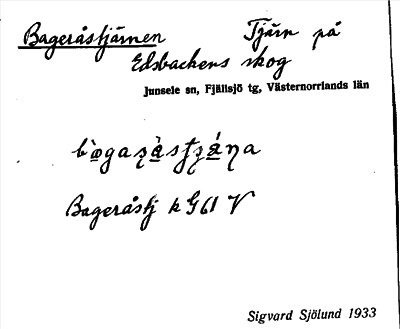 Bageråstjärnen Tjärn på
Edsbackens skog
Junsele sn, Fjällsjö tg, Västernorrlands län
Bageråstj k G61 V
Sigvard Sjölund 1933